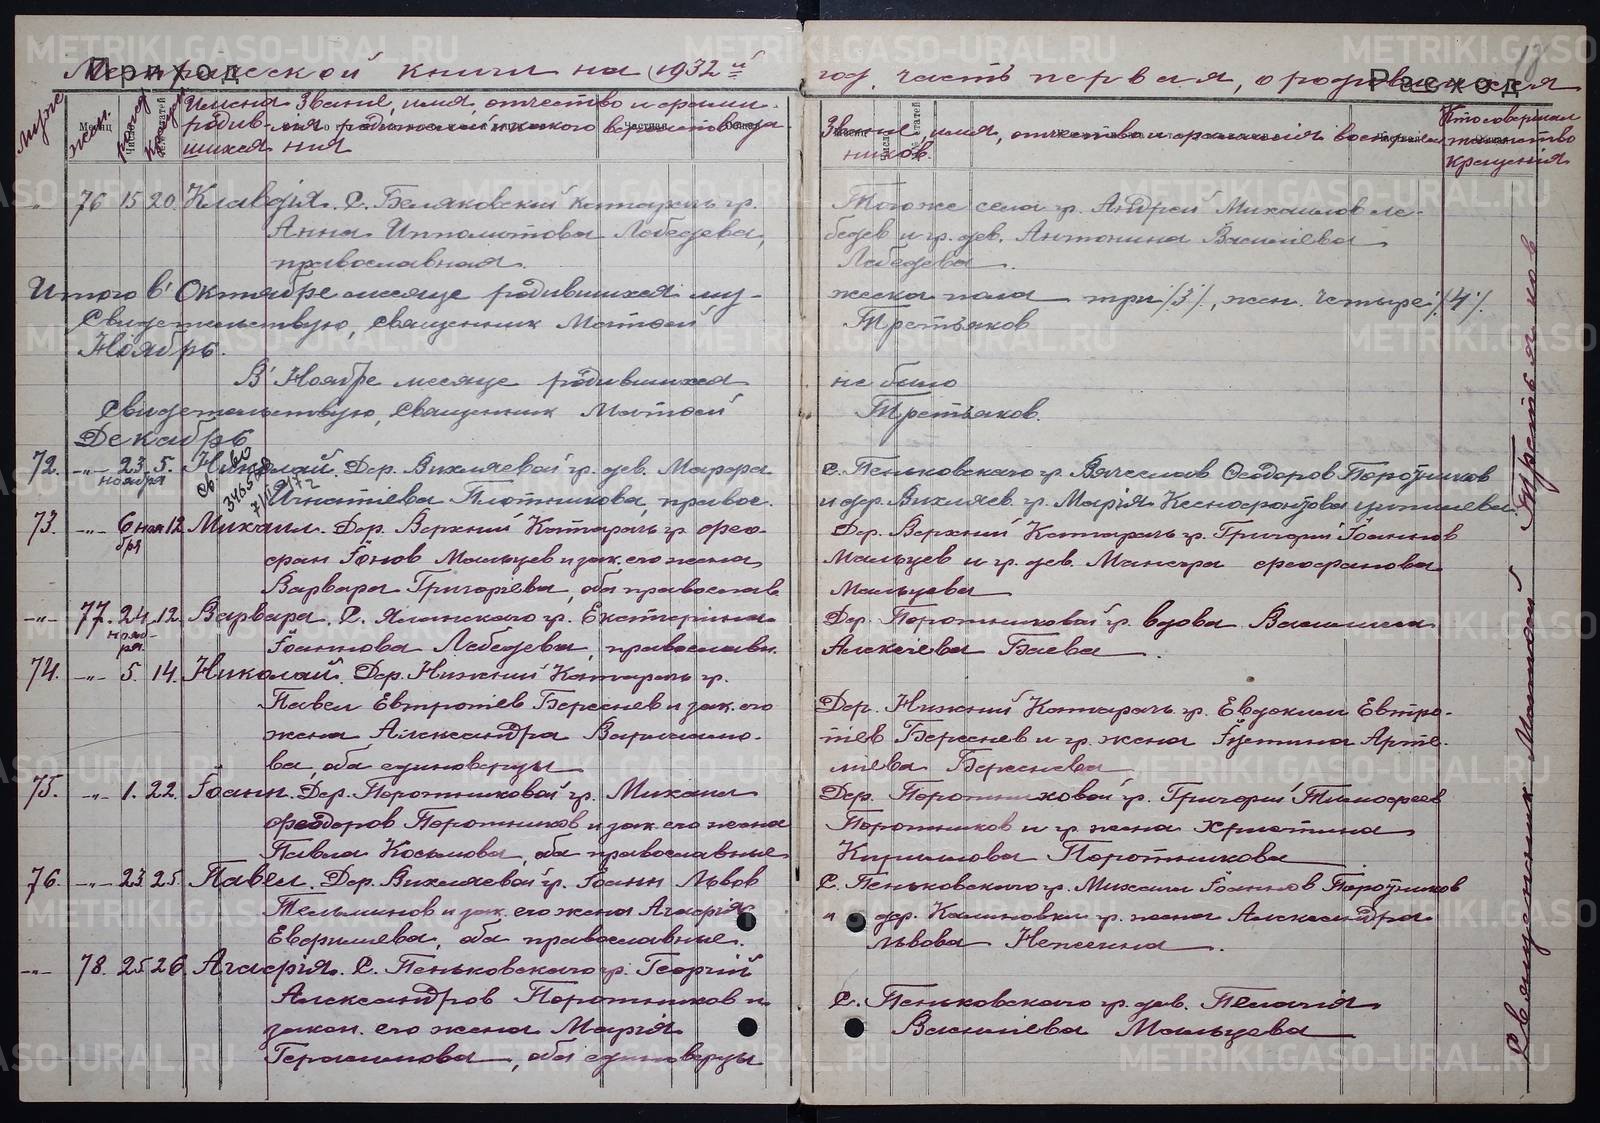 Приход
Метрической книги на 1932й год, часть первая, о родившихся
Расход
муж. жен. рожд. крещ. Имена родившихся
Звание, имя, отчество и фамилия родителей и какого вероисповедания
Звание, имя, отчество и фамилия восприемников.
Кто совершал таинство крещения
76 15 20. Клавдiя. С. Беляковский Катарачь гр.
Анна Ипполитова Лебедева,
православная.
Тогоже села гр. Андрей Михаилов Ле-
бедев и гр. дев. Антонина Василiева
Лебедева.
Итого в Октябре месяце родившихся му-
жеска пола три /3/, жен. четыре /4/.
Свидетельствую, Священник Матфей Третьяков
Ноябрь.
В Ноябре месяце родившихся не было
Свидетельствую, Священник Матфей Третьяков.
Декабрь
72. -"- 23 ноября 5. Николай. Дер. Вихляевой гр. дев. Марфа
Игнатiева Плотникова, правос.
С. Пеньковскаго гр. Вячеслав Феодоров Поротников
и дер. Вихляев. гр. Марiя Ксенофонтова
73. -"- 6 ноября 12 Михаил. Дер. Верхний Катарачь гр. Фео-
фан Iонов Мальцев и зак. его жена
Варвара Григорiева, оба православ.
Дер. Верхний Катарачь гр. Григорий Iоаннов
Мальцев и гр. дев. Манефа Феофанова
Мальцева
-"- 77. 24 ноября 12. Варвара. С. Яланскаго гр. Екатерина
Iоаннова Лебедева, православн.
Дер. Поротниковой гр. вдова Василиса
Алексеева Баева.
74. -"- 5. 14. Николай. Дер. Нижний Катарачь гр.
Павел Евтропiев Береснев и зак. его
жена Александра Варлаамо-
ва, оба единоверцы
Дер. Нижний Катарачь гр. Евдоким Евтро-
пiев Береснев и гр. жена Iустина Арте-
мiева Береснева
75. -"- 1. 22. Iоанн. Дер. Поротниковой гр. Михаил
Феодоров Поротников и зак. его жена
Павла Косьмова, оба православные
Дер. Поротниковой гр. Григорий Тимофеев
Поротников и гр. жена Христина
Кириллова Поротникова
76. -"- 23 25. Павел. Дер. Вихляевой гр. Iоанн Львов
Тельминов и зак. его жена Агафiя
Евфимiева, оба православные.
С. Пеньковскаго гр. Михаил Iоаннов Поротников
и дер. Калиновки гр. жена Александра
Львова Непеина.
-"- 78. 25 26 Агафiя. С. Пеньковскаго гр. Георгий
Александров Поротников и
закон. его жена Марiя
Герасимова, оба единоверцы
С. Пеньковскаго гр. дев. Пелагiя
Василiева Мальцева
Священник Матфей Третьяков
METRIKI.GASO-URAL.RU